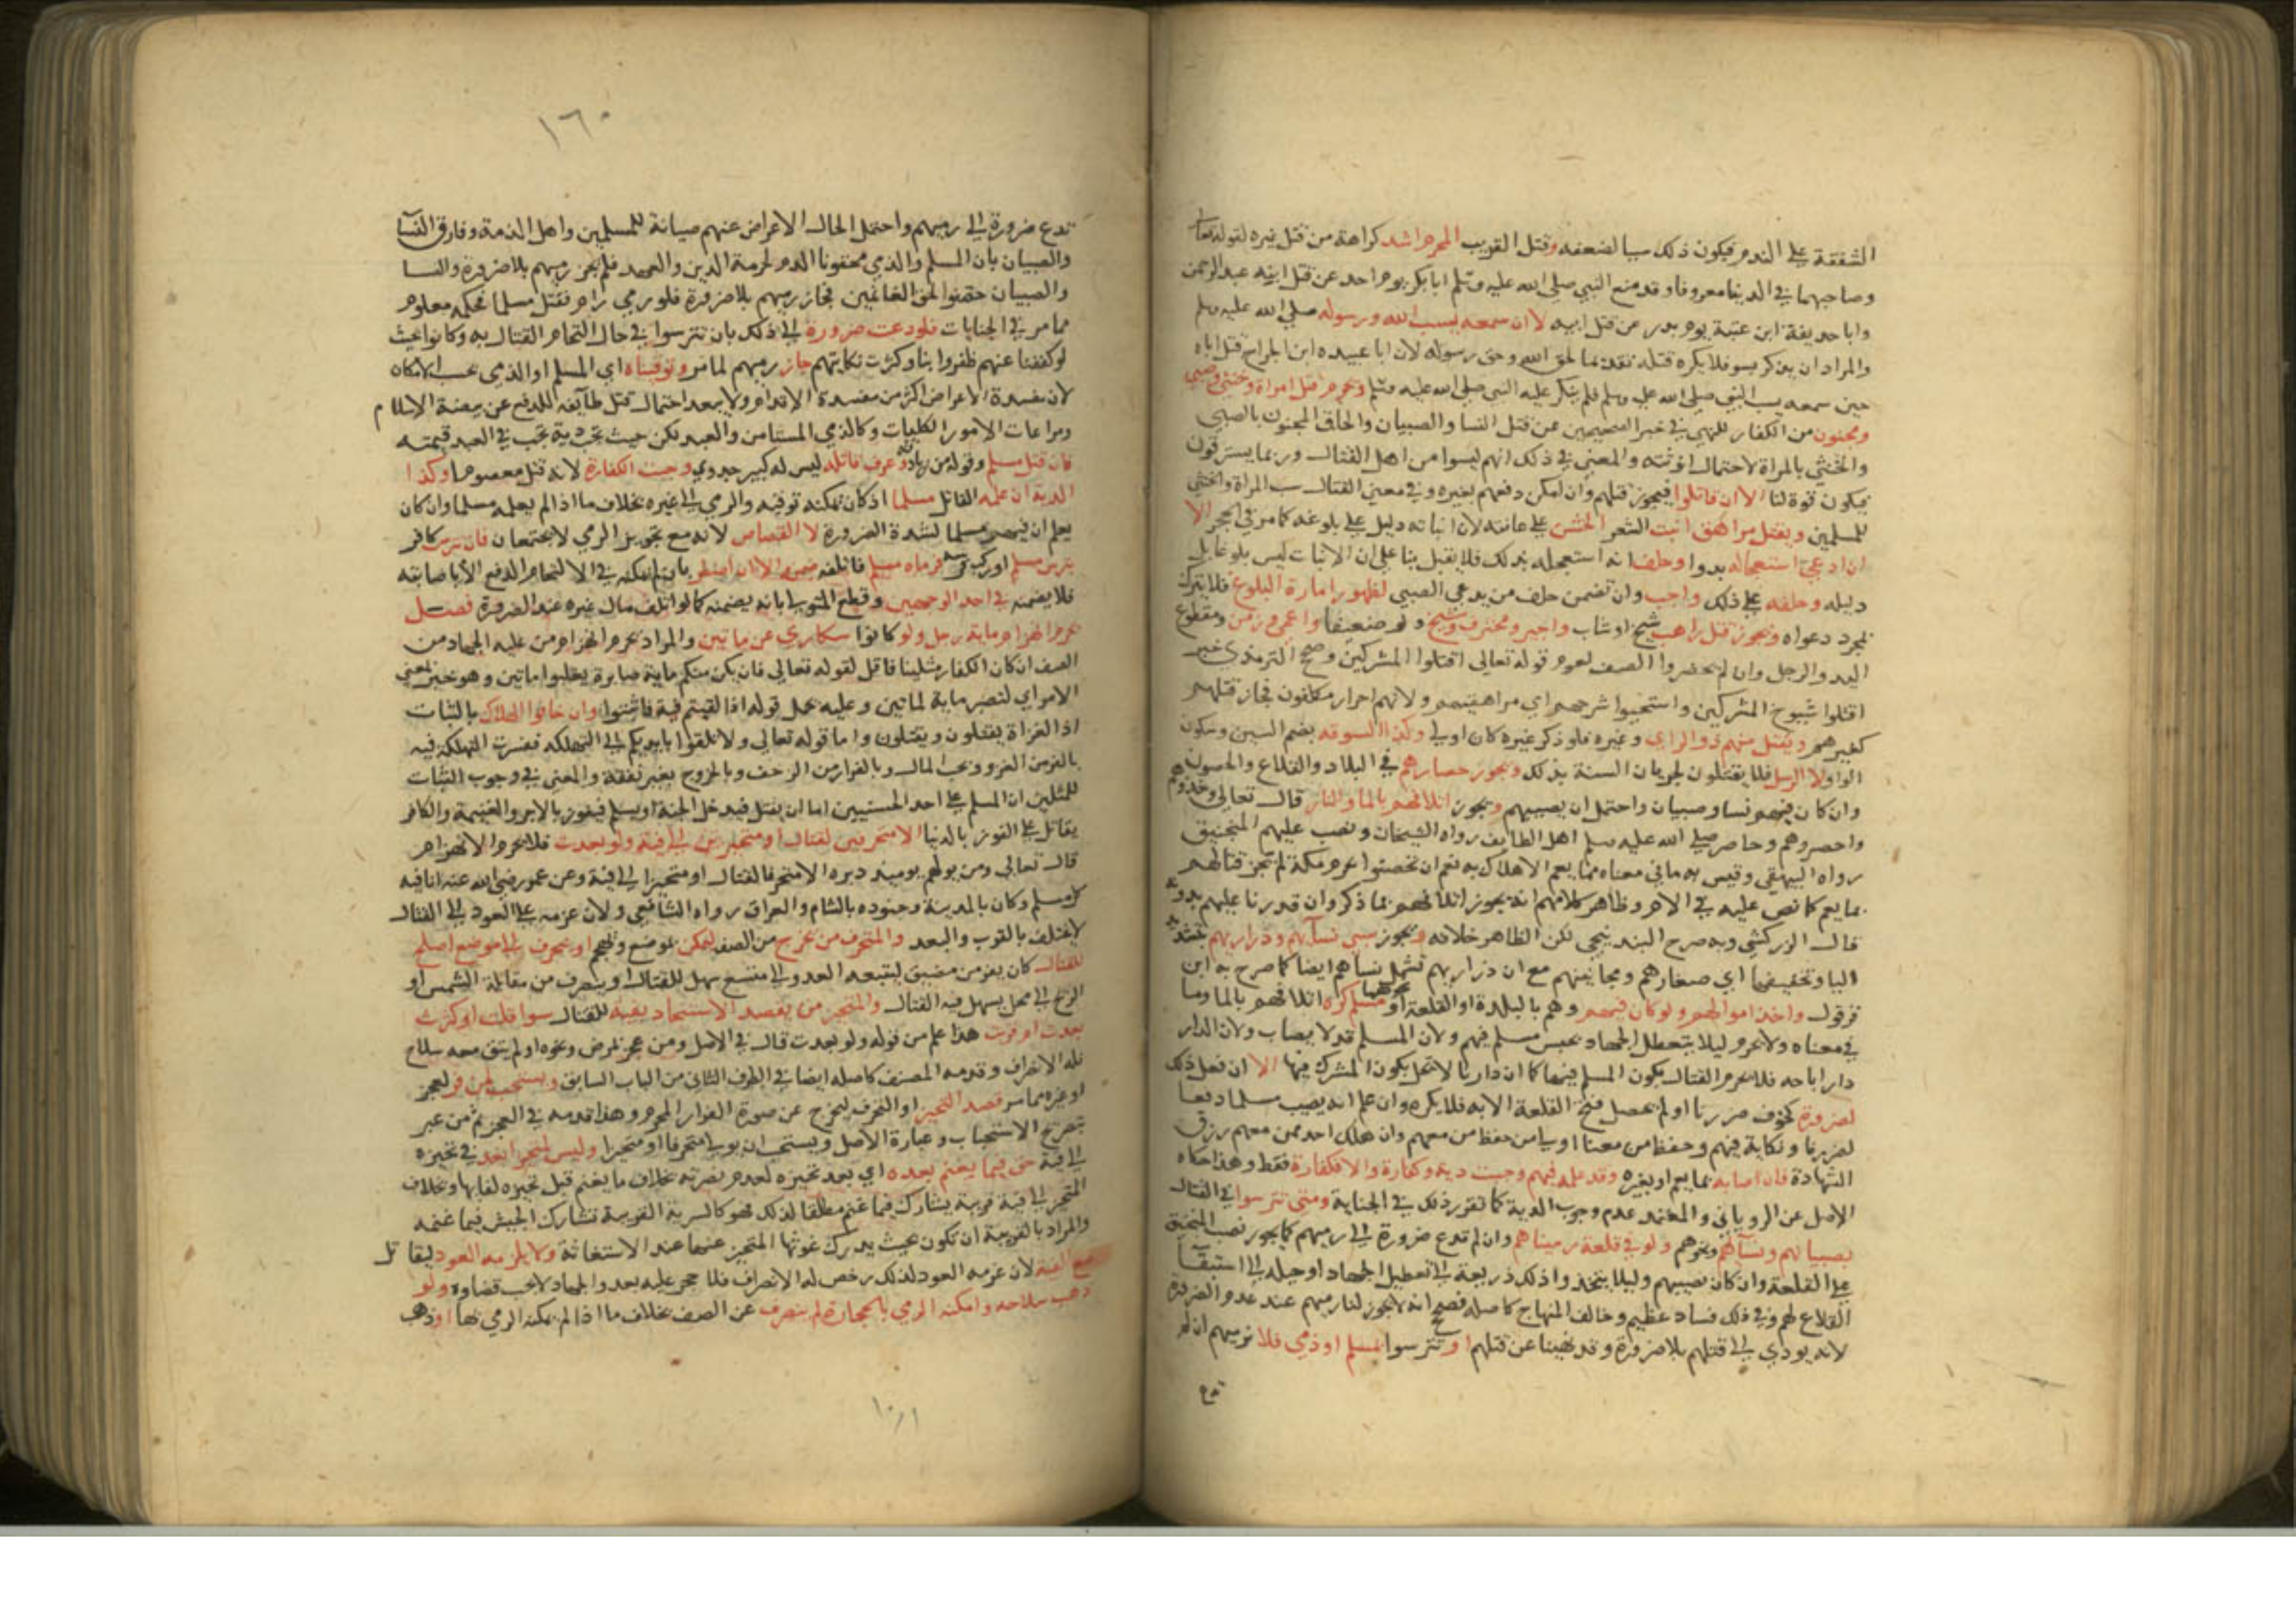 الشفقة على الندم فيكون ذلك سببا لضعفه وقتل القريب المحرم اشد كراهة من قتل غيره لقوله تعالى
وصاحبهما في الدنيا معروفا وقد منع النبي صلى الله عليه وسلم ابا بكر يوم احد عن قتل ابنه عبد الرحمن
وابا حذيفة ابن عتبة يوم بدر عن قتل ابيه لا ان سمعه يسب الله ورسوله صلى الله عليه وسلم
والمراد ان يذكر بسو فلا يكره قتله تقديما لحق الله وحق رسوله لان ابا عبيدة ابن الجراح قتل اباه
حين سمعه يسب النبي صلى الله عليه وسلم فلم ينكر عليه النبي صلى الله عليه وسلم ويحرم قتل امراة وخنثى وصبي
ومجنون من الكفار للنهي في خبر الصحيحين عن قتل النسا والصبيان والحاق المجنون بالصبي
والخنثى بالمراة لاحتمال انوثته والمعنى في ذلك انهم ليسوا من اهل القتال وربما يسترقون
فيكون قوة لنا الا ان قاتلوا فيجوز قتلهم وان امكن دفعهم بغيره وفي معنى القتال سب المراة والخنثى
للمسلمين ويقتل مراهق انبت الشعر الخشن على عانته لان انباته دليل على بلوغه كما مر في الحجر الا
ان ادعى استعجاله بدوا وحلف انه استعجله بذلك فلا يقتل بنا على ان الانبات ليس بلوغا بل
دليله وحلفه على ذلك واجب وان تضمن حلف من يدعي الصبي لظهور امارة البلوغ فلا يترك
بمجرد دعواه ويجوز قتل راهب شيخ او شاب واجير ومحترف وشيخ ولو ضعيفا واعمى وزمن ومقطوع
اليد والرجل وان لم يحضروا الصف لعموم قوله تعالى اقتلوا المشركين وصحح الترمذي خبر
اقتلوا شيوخ المشركين واستحيوا شرخهم اي مراهقيهم ولانهم احرار مكلفون فجاز قتلهم
كغيرهم ويقتل منهم ذو الراي وغيره فلو ذكر غيره كان اولى وكذا السوقه بضم السين وسكون
الواو لا الرسل فلا يقتلون لجريان السنة بذلك ويجوز حصارهم في البلاد والقلاع والحصون
وان كان فيهم نسا وصبيان واحتمل ان يصيبهم ويجوز اتلافهم بالما والنار قال تعالى وخذوهم
واحصروهم وحاصر صلى الله عليه وسلم اهل الطايف رواه الشيخان ونصب عليهم المنجنيق
رواه البيهقي وقيس به ما في معناه مما يعم الاهلاك به نعم ان تحصنوا بحرم مكة لم يجز قتالهم
بما يعم كما نص عليه في الام وظاهر كلامهم انه يجوز اتلافهم بما ذكر وان قدرنا عليهم بدونه
قال الزركشي وبه صرح البندنيجي لكن الظاهر خلافه ويجوز سبي نسآيهم وذراريهم بتشديد
اليا وتخفيفها اي صغارهم ومجانينهم مع ان ذراريهم تشمل نساهم ايضا كما صرح به ابن
قرقول واخذ اموالهم ولو كان فيهم وهم بالبلدة او القلعة او نحوهما مسلم كره اتلافهم بالما وما
في معناه ولا يحرم ليلا يتعطل الجهاد بحبس مسلم فيهم ولان المسلم قد لا يصاب ولان الدار
دار اباحه فلا يحرم القتال بكون المسلم فيها كما ان دارنا لا تحل بكون المشرك فيها الا ان فعل ذلك
لضرورة كخوف ضررنا او لم يحصل فتح القلعة الا به فلا يكره وان علم انه يصيب مسلما دفعا
لضررنا ونكاية فيهم وحفظ من معنا اولى من حفظ من معهم وان هلك احد ممن معهم رزق
الشهادة فان اصابه بما يعم او بغيره وقد علمه فيهم وجبت دية وكفارة والا فكفارة فقط وهذا حكاه
الاصل عن الروياني والمعتمد عدم وجوب الدية كما تقرر ذلك في الجناية ومتى تترسوا في القتال
بصبيانهم ونسآهم ونحوهم ولو في قلعة رميناهم وان لم تدع ضرورة الى رميهم كما يجوز نصب المنجنيق
على القلعة وان كان يصيبهم وليلا يتخذوا ذلك ذريعة الى تعطيل الجهاد او حيلة الى استبقآ
القلاع لهم وفي ذلك فساد عظيم وخالف المنهاج كاصله فصحح انه لا يجوز لنا رميهم عند عدم الضرورة
لانه يودي الى قتلهم بلا ضرورة وقد نهينا عن قتلهم او تترسوا بمسلم او ذمي فلا نرميهم ان لم
تدع
١٦٠
تدع ضرورة الى رميهم واحتمل الحال الاعراض عنهم صيانة للمسلمين واهل الذمة وفارق النسآ
والصبيان بان المسلم والذمي محقونا الدم لحرمة الدين والعهد فلم يجز رميهم بلا ضرورة والنسا
والصبيان حقنوا لحق الغانمين فجاز رميهم بلا ضرورة فلو رمى رام فقتل مسلما فحكمه معلوم
مما مر في الجنايات فلو دعت ضرورة الى ذلك بان تترسوا في حال التحام القتال به وكانوا بحيث
لو كففنا عنهم ظفروا بنا وكثرت نكايتهم جاز رميهم لما مر وتوقيناه اي المسلم او الذمي بحسب الامكان
لان مفسدة الاعراض اكثر من مفسدة الاقدام ولا يبعد احتمال قتل طآيفة للدفع عن بيضة الاسلام
ومراعات الامور الكليات وكالذمي المستامن والعبد لكن حيث تجب دية تجب في العبد قيمته
فان قتل مسلم وقوله من زيادته وعرف قاتله ليس له كبير جدوى وجبت الكفارة لانه قتل معصوما وكذا
الدية ان علمه القاتل مسلما اذ كان يمكنه توقيه والرمي الى غيره بخلاف ما اذا لم يعلمه مسلما وان كان
يعلم ان فيهم مسلما لشدة الضرورة لا القصاص لانه مع تجويز الرمي لا يجتمعان فان تترس كافر
بترس مسلم او ركب فرسه فرماه مسلم فاتلفه ضمن الا ان اضطر بان لم يمكنه في الالتحام الدفع الا باصابته
فلا يضمنه في احد الوجهين وقطع المتولي بانه يضمنه كما لو اتلف مال غيره عند الضرورة فصل
يحرم انهزام ماية رجل ولو كانوا سكارى عن ماتين والمراد يحرم انهزام من عليه الجهاد من
الصف ان كان الكفار مثلينا فاقل لقوله تعالى فان يكن منكم ماية صابرة يغلبوا ماتين وهو خبر بمعنى
الامر اي لتصبر ماية لماتين وعليه يحمل قوله اذا لقيتم فية فاثبتوا وان خافوا الهلاك بالثبات
اذ الغزاة يقتلون ويقتلون واما قوله تعالى ولا تلقوا بايديكم الى التهلكه ففسرت التهلكة فيه
بالفر من الغزو وبحب المال وبالفرار من الزحف وبالخروج بغير نفقة والمعنى في وجوب الثبات
للمثلين ان المسلم على احد الحسنيين اما ان يقتل فيدخل الجنة او يسلم فيفوز بالاجر والغنيمة والكافر
يقاتل على الفوز بالدنيا الا متحرفين لقتال او متحيزين الى فية ولو بعدت فلا يحرم الانهزام
قال تعالى ومن يولهم يوميذ دبره الا متحرفا لقتال او متحيزا الى فية وعن عمر رضي الله عنه انا فية
كل مسلم وكان بالمدينة وجنوده بالشام والعراق رواه الشافعي ولان عزمه على العود الى القتال
لا يختلف بالقرب والبعد والمتحرف من يخرج من الصف ليكمن بموضع ويهجم او ينحرف الى موضع اصلح
للقتال كان يفر من مضيق ليتبعه العدو الى متسع سهل للقتال او ينحرف من مقابلة الشمس او
الريح الى محل يسهل فيه القتال والمتحيز من يقصد الاستنجاد بفية للقتال سوا قلت او كثرت
بعدت او قربت هذا علم من قوله ولو بعدت قال في الاصل ومن عجز لمرض ونحوه او لم يبق معه سلاح
فله الانصراف وقدمه المصنف كاصله ايضا في الطرف الثاني من الباب السابق ويستحب لمن فر لعجز
او غيره مما مر قصد التحيز او التحرف ليخرج عن صورة الفرار المحرم وهذا قدمه في العجز ثم من غير
تصريح الاستحباب وعبارة الاصل ويستحب ان يولي متحرفا او متحيزا وليس لمتحيز ابعد في تحيزه
الى فية حق فيما يغنم بعده اي بعد تحيزه لعدم نصرته بخلاف ما يغنم قبل تحيزه لبقايها وبخلاف
المتحيز الى فية قريبة يشارك فيما غنم مطلقا لذلك فهو كالسرية القريبة تشارك الجيش فيما غنمه
والمراد بالقريبة ان تكون بحيث يدرك غوثها المتحيز عنها عند الاستغاثة ولا يلزمه العود ليقاتل
مع الفية لان عزمه العود لذلك رخص له الانصراف فلا حجر عليه بعد والجهاد لا يجب قضاوه ولو
ذهب سلاحه وامكنه الرمي بالحجارة لم ينصرف عن الصف بخلاف ما اذا لم يمكنه الرمي بها او ذهب